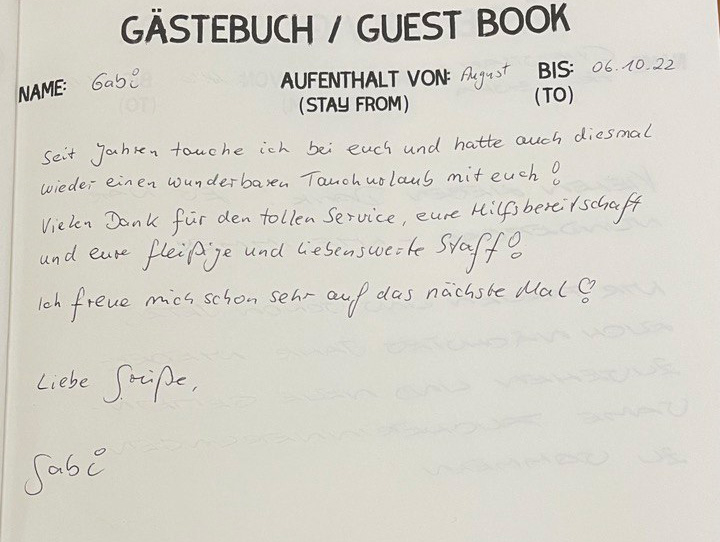 GÄSTEBUCH / GUEST BOOK
NAME: Gabi AUFENTHALT VON: August BIS: 06.10.22
(STAY FROM) (TO)
Seit Jahren tauche ich bei euch und hatte auch diesmal
wieder einen wunderbaren Tauchurlaub mit euch!
Vielen Dank für den tollen Service, eure Hilfsbereitschaft
und eure fleißige und liebenswerte Staff!
Ich freue mich schon sehr auf das nächste Mal!
Liebe Grüße,
Gabi